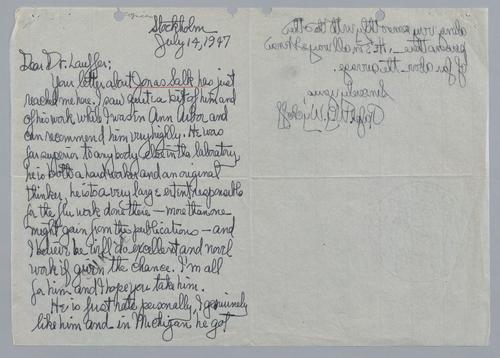 Stockholm
July 14, 1947
Dear Dr. Lauffer:
Your letter about Jonas Salk has just
reached me here. I saw quite a bit of him and
of his work while I was in Ann Arbor and
can recommend him very highly. He was
far superior to anybody else in the laboratory,
he is both a hard worker and an original
thinker, he is to a very large extent responsible
for the flu work done there — more than one
might gain from the publications — and
I believe he will do excellent and novel
work if given the chance. I'm all
for him and I hope you take him.
He is just personally, I genuinely
like him and in Michigan he got
along very smoothly with the other
people there. He is in all ways a person
far above the average.
Sincerely yours
Ralph W. G. Wyckoff